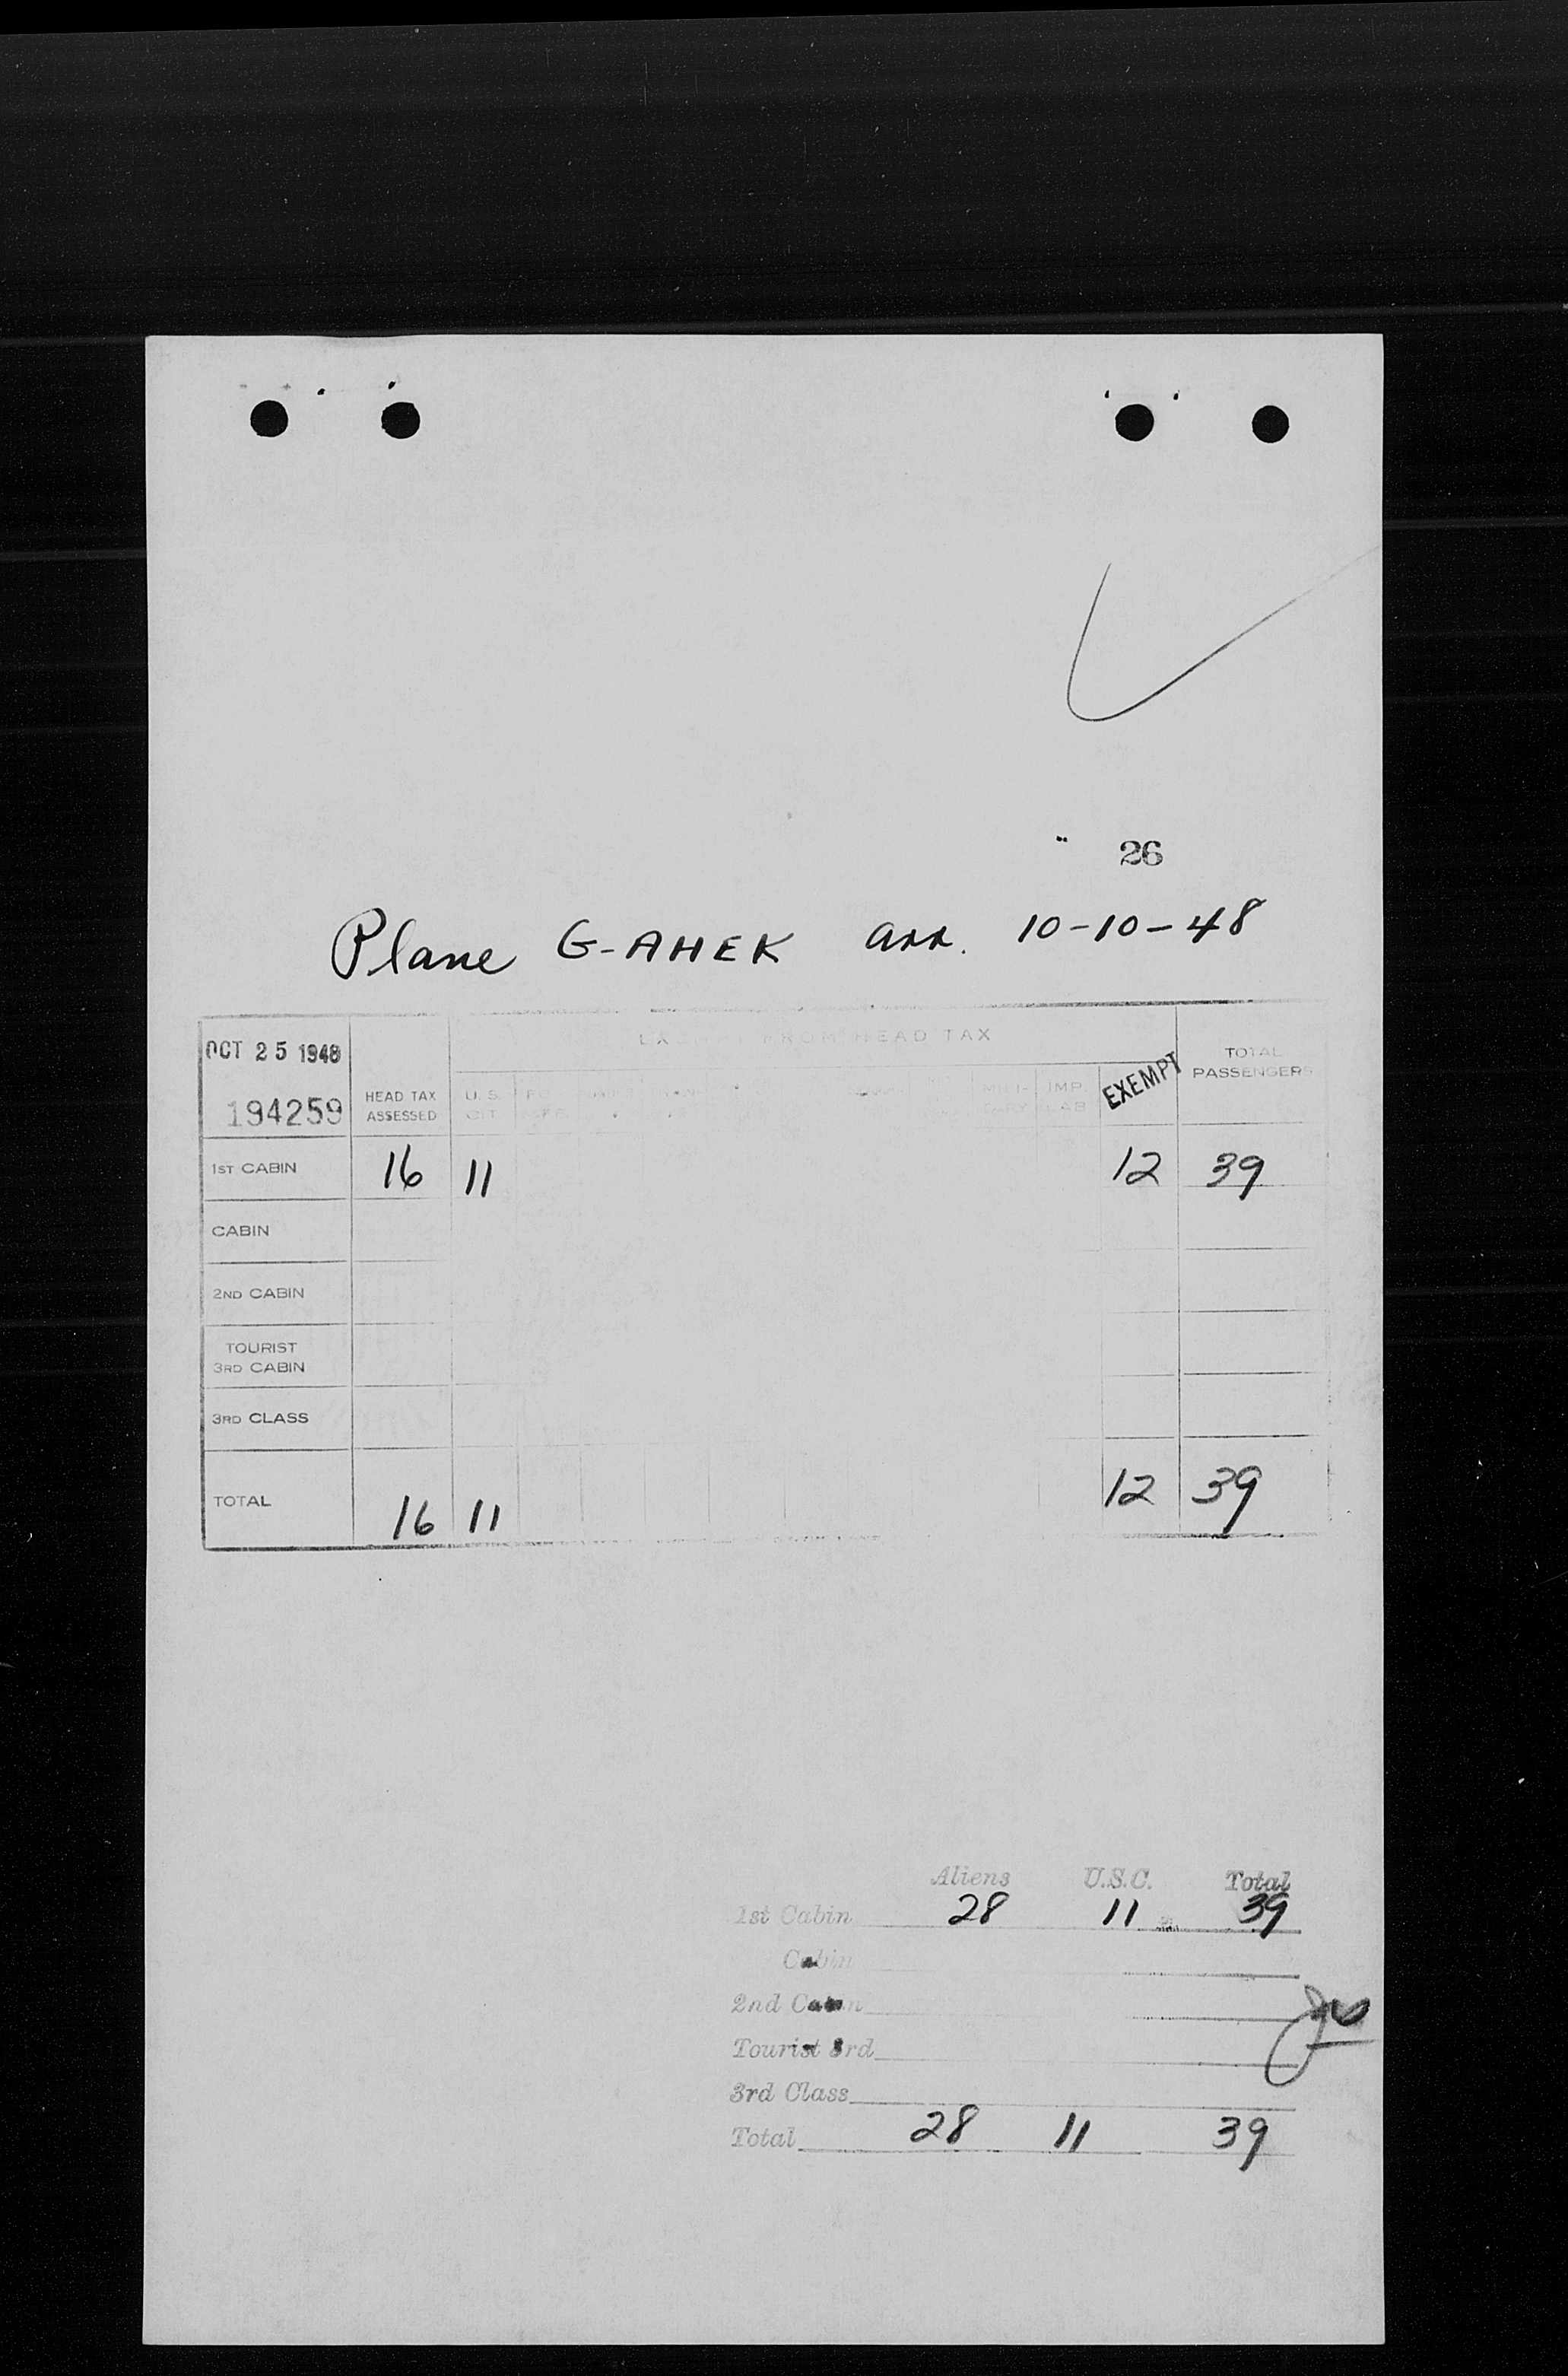 26
Plane G-AHEK arr. 10-10-48
OCT 25 1948
194259
HEAD TAX ASSESSED
U. S. CIT
FROM HEAD TAX
IMP. LAB
EXEMPT
TOTAL PASSENGERS
1ST CABIN 16 11 12 39
CABIN
2ND CABIN
TOURIST
3RD CABIN
3RD CLASS
TOTAL 16 11 12 39
Aliens U.S.C. Total
1st Cabin 28 11 39
Cabin
2nd Cabin
Tourist 3rd
3rd Class
Total 28 11 39